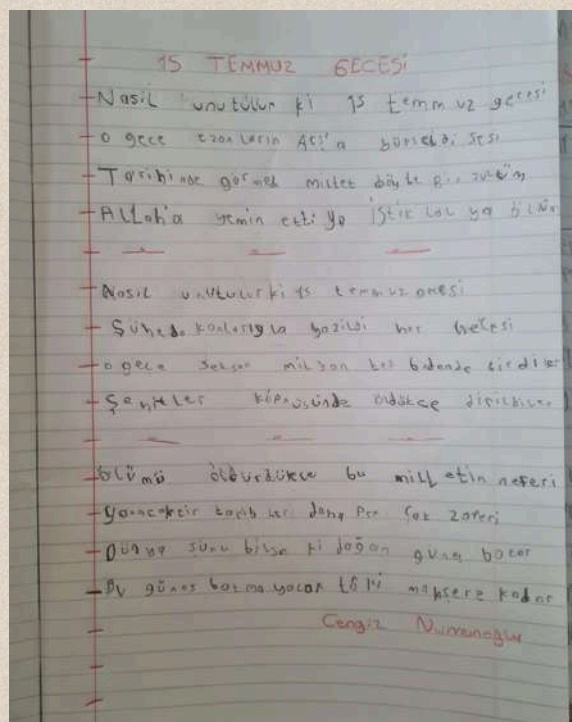 15 TEMMUZ GECESİ
Nasıl unutulur ki 15 temmuz gecesi
o gece ezanların Arş'a yükseldi sesi
Tarihinde görmedi millet böyle bir zulüm
Allah'a yemin etti ya istiklal ya ölüm
Nasıl unutulur ki 15 temmuz
Şüheda kanlarıyla yazıldı her hecesi
o gece seksen milyon tek bedende
Şehitler köprüsünde öldükçe dirildiler
Ölümü öldürdükçe bu milletin neferi
yazacaktır tarih her daha pek çok zaferi
Dünya şunu bilse ki doğan güneş batar
Bu güneş batmayacak tâ ki mahşere kadar
Cengiz Numanoğlu